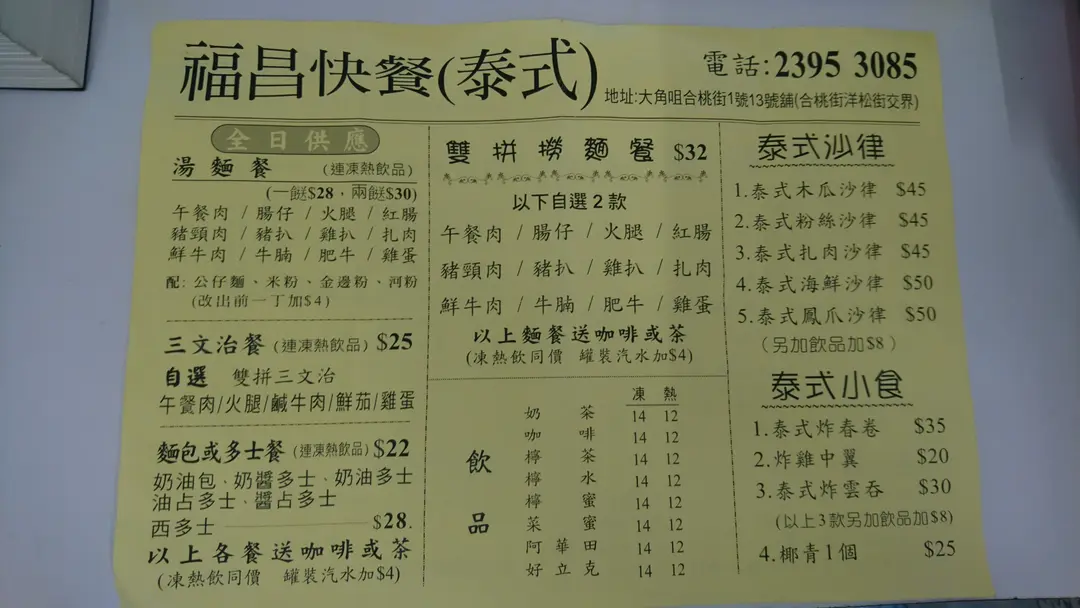 福昌快餐(泰式)
電話:2395 3085
地址:大角咀合桃街1號13號舖(合桃街洋松街交界)
全日供應
湯麵餐 (連凍熱飲品)
(一餸$28，兩餸$30)
午餐肉 / 腸仔 / 火腿 / 紅腸
豬頸肉 / 豬扒 / 雞扒 / 扎肉
鮮牛肉 / 牛腩 / 肥牛 / 雞蛋
配: 公仔麵、米粉、金邊粉、河粉
(改出前一丁加$4)
三文治餐 (連凍熱飲品) $25
自選 雙拼三文治
午餐肉/火腿/鹹牛肉/鮮茄/雞蛋
麵包或多士餐 (連凍熱飲品) $22
奶油包、奶醬多士、奶油多士
油占多士、醬占多士
西多士 $28.
以上各餐送咖啡或茶
(凍熱飲同價 罐裝汽水加$4)
雙拼撈麵餐 $32
以下自選2款
午餐肉 / 腸仔 / 火腿 / 紅腸
豬頸肉 / 豬扒 / 雞扒 / 扎肉
鮮牛肉 / 牛腩 / 肥牛 / 雞蛋
以上麵餐送咖啡或茶
(凍熱飲同價 罐裝汽水加$4)
飲品
凍 熱
奶茶 14 12
咖啡 14 12
檸茶 14 12
檸水 14 12
檸蜜 14 12
菜蜜 14 12
阿華田 14 12
好立克 14 12
泰式沙律
1.泰式木瓜沙律 $45
2.泰式粉絲沙律 $45
3.泰式扎肉沙律 $45
4.泰式海鮮沙律 $50
5.泰式鳳爪沙律 $50
(另加飲品加$8)
泰式小食
1.泰式炸春卷 $35
2.炸雞中翼 $20
3.泰式炸雲吞 $30
(以上3款另加飲品加$8)
4.椰青1個 $25